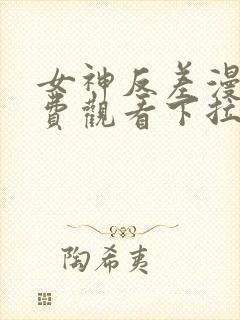 女神反差漫
費觀看下拉
陶希夷